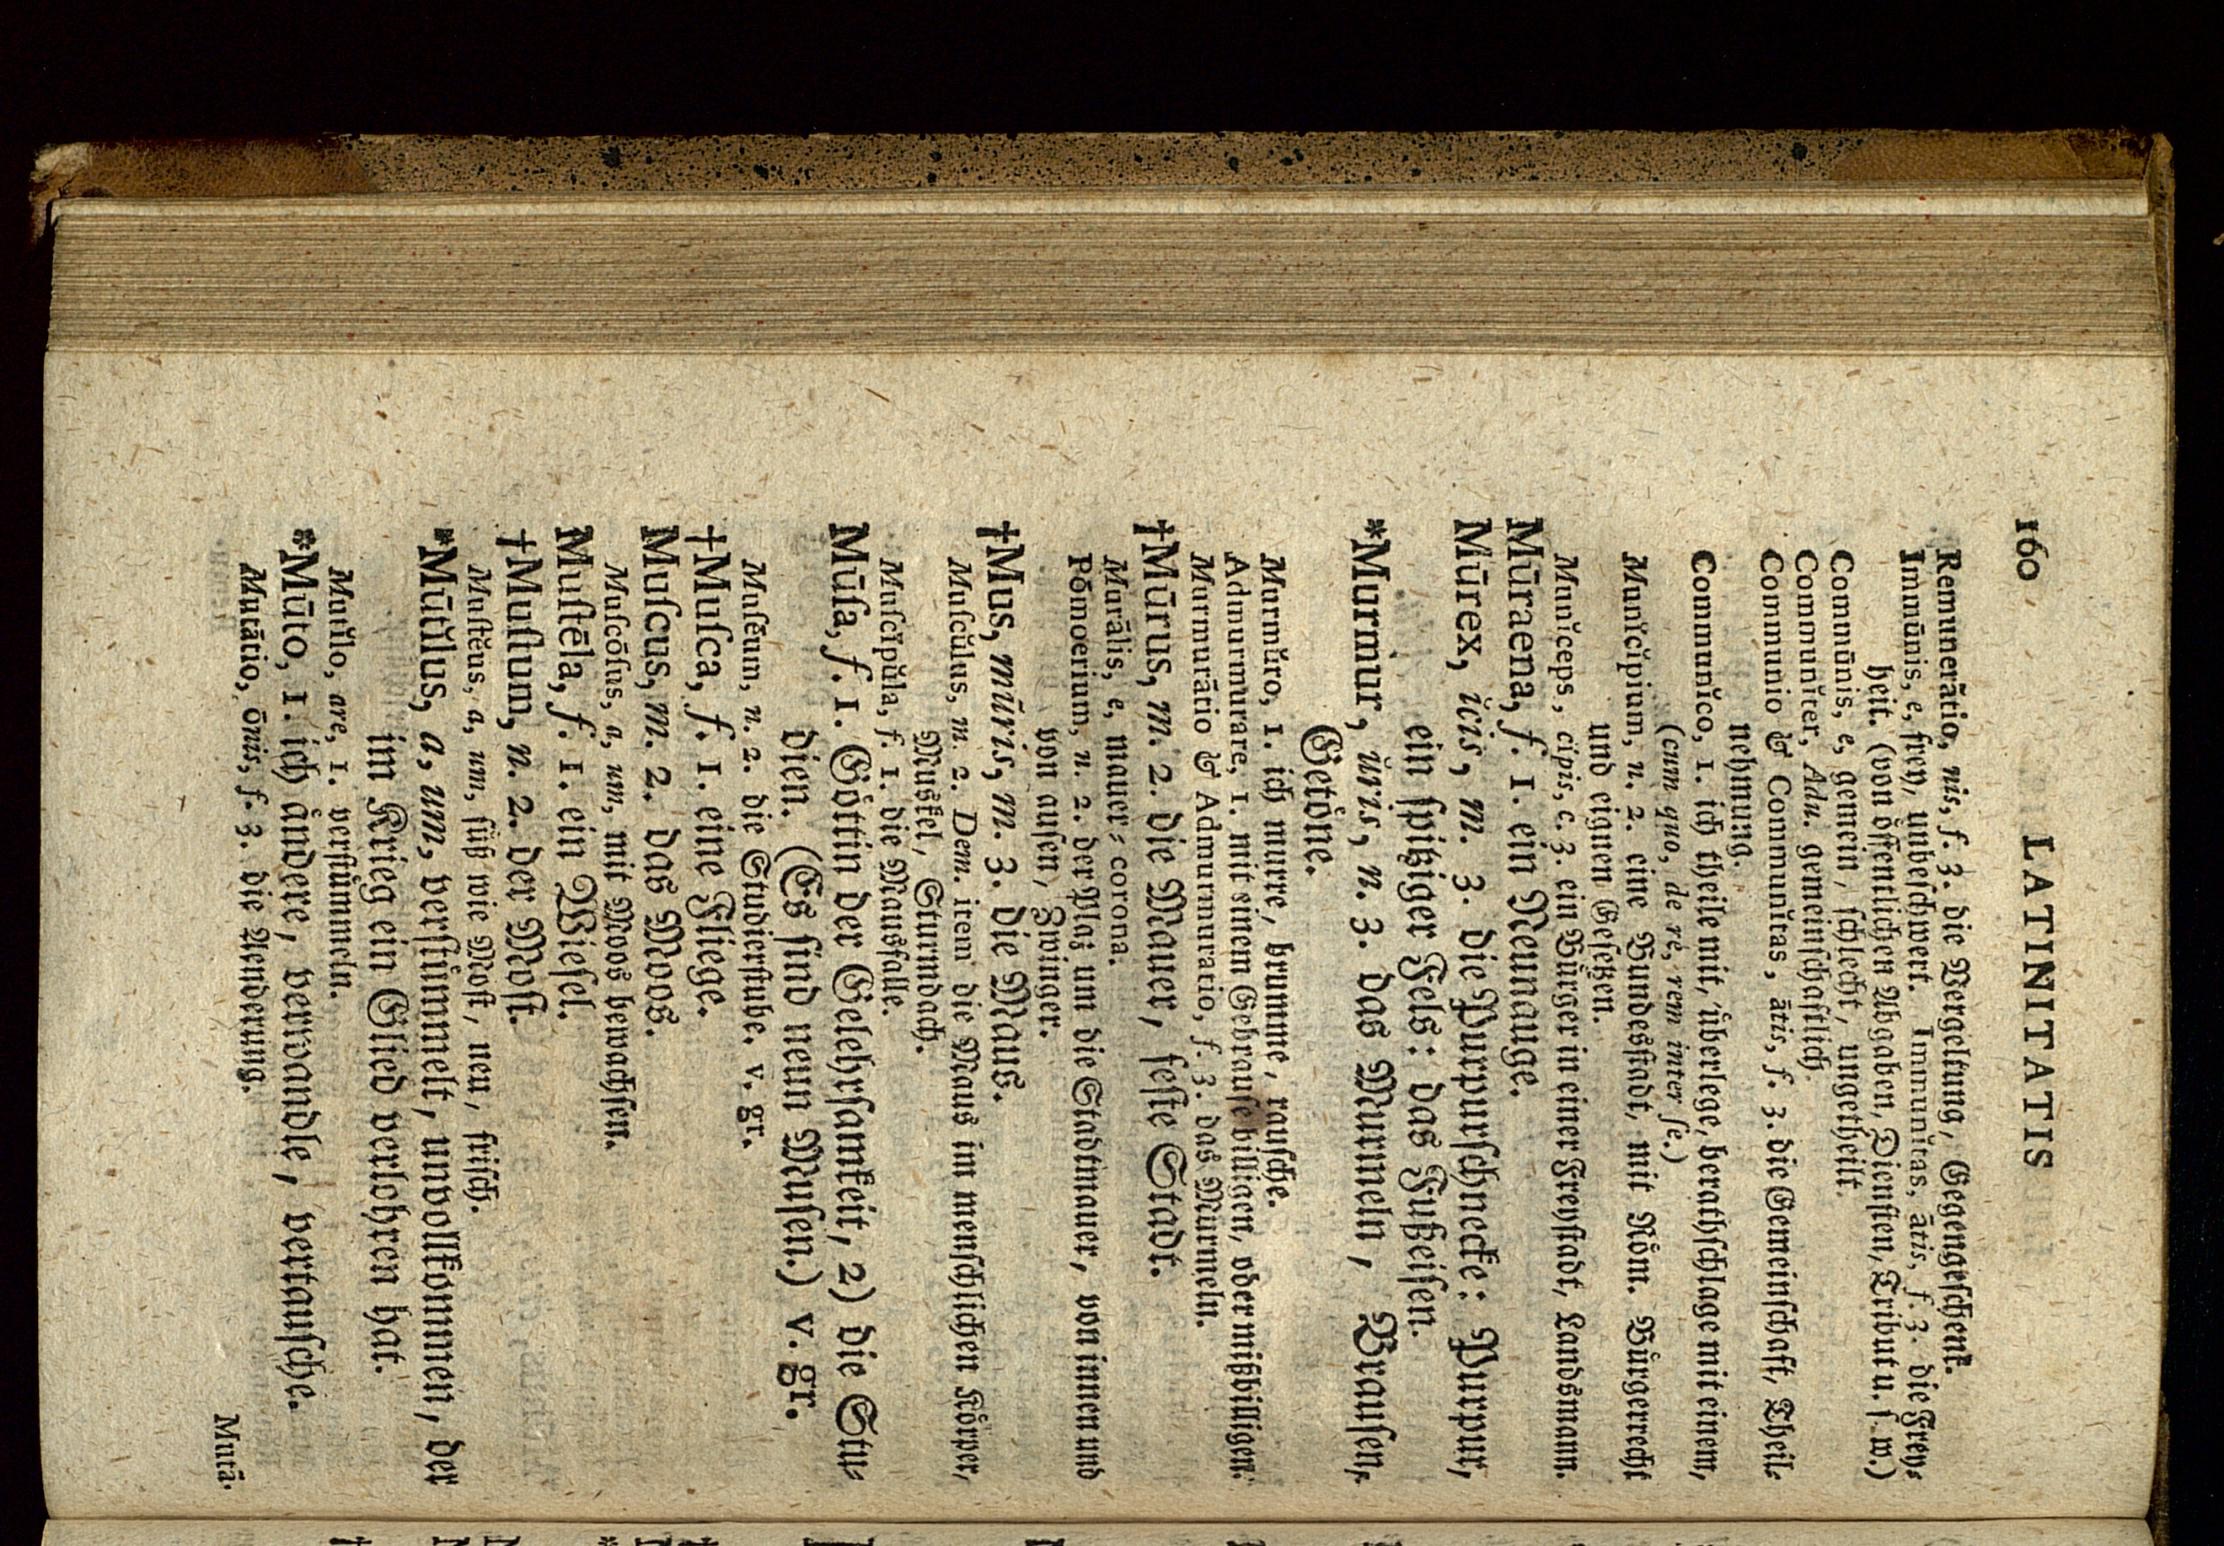 160 LATINITATIS
Remunerātio, nis, f. 3. die Vergeltung, Gegengeschenk.
Immūnis, e, frey, unbeschwert. Immunĭtas, ātis, f. 3. die Frey-
heit. (von öffentlichen Abgaben, Diensten, Tribut u. s. w.)
Commūnis, e, gemein, schlecht, ungetheilt.
Communĭter, Adv. gemeinschaftlich.
Communio & Communĭtas, ātis, f. 3. die Gemeinschaft, Theil-
nehmung.
Communĭco, 1. ich theile mit, überlege, berathschlage mit einem,
(cum quo, de re, rem inter se.)
Municĭpium, n. 2. eine Bundesstadt, mit Röm. Bürgerrecht
und eignen Gesetzen.
Munĭceps, cĭpis, c. 3. ein Bürger in einer Freystadt, Landsmann.
Mūraena, f. 1. ein Neunauge.
Mūrex, ĭcis, m. 3. die Purpurschnecke: Purpur,
ein spitziger Fels: das Fußeisen.
*Murmur, ŭris, n. 3. das Murmeln, Brausen,
Getöne.
Murmŭro, 1. ich murre, brumme, rausche.
Admurmurare, 1. mit einem Gebrause billigen, oder mißbilligen.
Murmurātio & Admurmuratio, f. 3. das Murmeln.
†Mūrus, m. 2. die Mauer, feste Stadt.
Murālis, e, mauer-corona.
Pōmoerium, n. 2. der Plaz um die Stadtmauer, von innen und
von aufen, Zwinger.
†Mus, mūris, m. 3. die Maus.
Muscŭlus, m. 2. Dem. item die Maus im menschlichen Körper,
Muskel, Sturmdach.
Muscĭpŭla, f. 1. die Mausfalle.
Mūsa, f. 1. Göttin der Gelehrsamkeit, 2) die Stu-
dien. (Es sind neun Musen.) v. gr.
Musēum, n. 2. die Studierstube. v. gr.
†Musca, f. 1. eine Fliege.
Muscus, m. 2. das Moos.
Muscōsus, a, um, mit Moos bewachsen.
Mustēla, f. 1. ein Wiesel.
†Mustum, n. 2. der Most.
Mustĕus, a, um, süß wie Most, neu, frisch.
*Mūtĭlus, a, um, verstümmelt, unvollkommen, der
im Krieg ein Glied verlohren hat.
Mutĭlo, are, 1. verstümmeln.
*Mūto, 1. ich ändere, verwandle, vertausche.
Mutātio, ōnis, f. 3. die Aenderung.
Mutā-